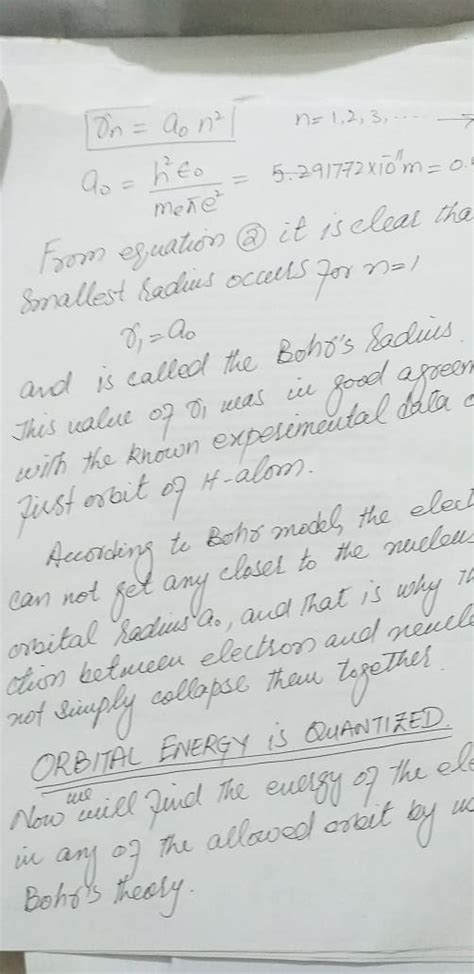 rn = a₀ n² n = 1, 2, 3, ....
a₀ = h² ε₀ / me π e² = 5.291772 × 10⁻¹¹ m = 0.
From equation ② it is clear tha
smallest radius occurs for n=1
r₁ = a₀
and is called the Bohr's radius.
This value of r₁ was in good agreem
with the known experimental data
first orbit of H-atom.
According to Bohr model, the elect
can not get any closer to the nucleus
orbital radius a₀, and that is why th
ction between electron and nucle
not simply collapse them together.
ORBITAL ENERGY is QUANTIZED.
Now we will find the energy of the ele
in any of the allowed orbit by u
Bohr's theory.